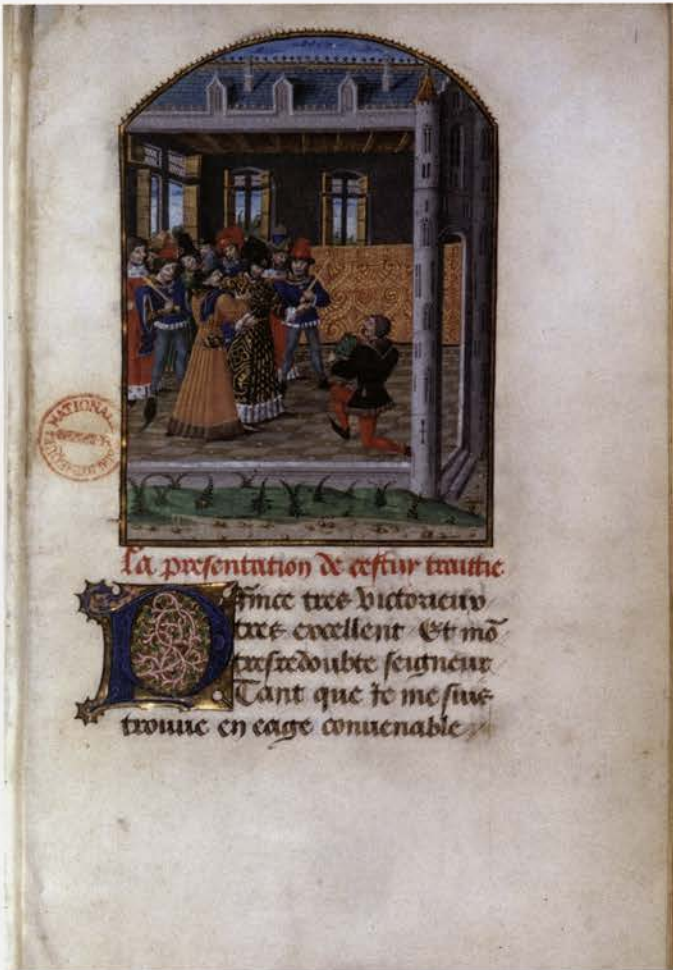 La presentation de cestui traittie
Prince tres victorieux
tres excellent Et mõ
tresredoubte seigneur
Tant que ie me suis
trouue en eage conuenable
NATIONAL